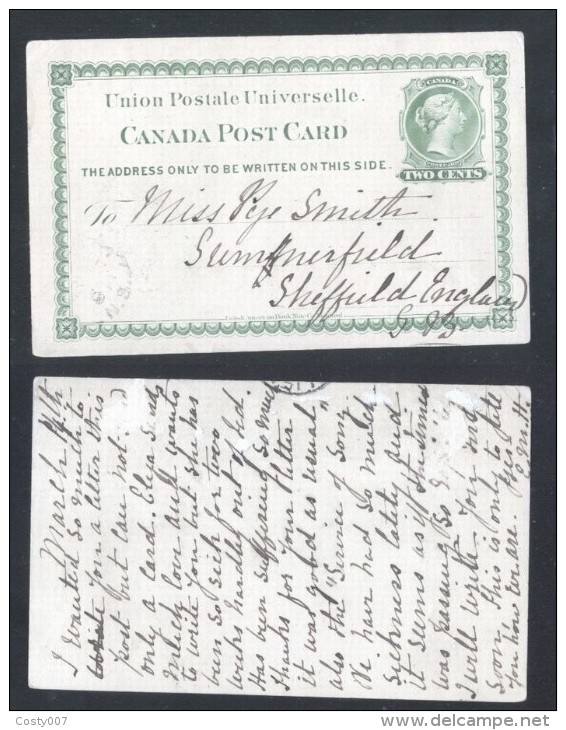 Union Postale Universelle.
CANADA POST CARD
THE ADDRESS ONLY TO BE WRITTEN ON THIS SIDE.
CANADA
TWO CENTS
To Miss Pye Smith
Summerfield
Sheffield England
G. B.
March 14th
I wanted so much to
write you a letter this
post but can not.
only a card. Eliza sends
Much love and wants
to write you but she has
been so sick for two
weeks hardly out of bed.
Has been suffering so much
Thanks for your letter
it was good as usual
also the "Service of Song"
We have had so much
sickness lately and
it seems as if the time
was passing so
I will write you only
Soon. This is only to tell
you how we are. yrs
E. M. H.
Costy007
www.delcampe.net